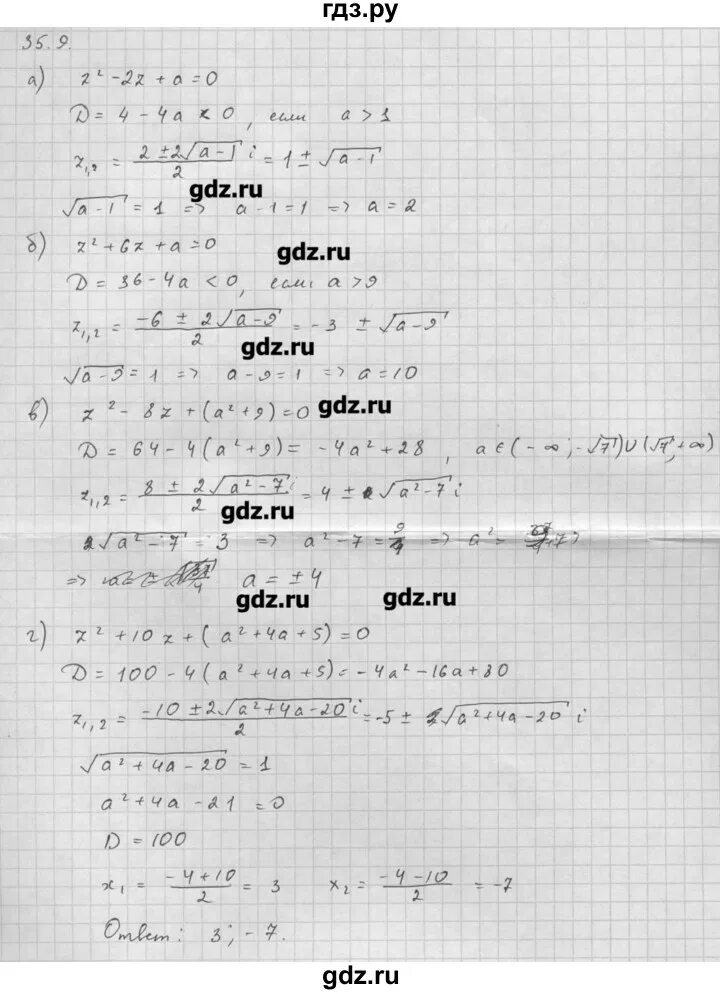 гдз.ру
35.9.
а) z² - 2z + a = 0
D = 4 - 4a < 0, если a > 1
z₁,₂ = (2 ± 2√(a-1) i)/2 = 1 ± √(a-1)
gdz.ru
√(a-1) = 1 => a-1 = 1 => a = 2
б) z² + 6z + a = 0
gdz.ru
D = 36 - 4a < 0, если a > 9
z₁,₂ = (-6 ± 2√(a-9))/2 = -3 ± √(a-9)
gdz.ru
√(a-9) = 1 => a-9 = 1 => a = 10
в) z² - 8z + (a² + 9) = 0
gdz.ru
D = 64 - 4(a² + 9) = -4a² + 28, a ∈ (-∞; -√7) ∪ (√7; +∞)
z₁,₂ = (8 ± 2√(a²-7) i)/2 = 4 ± √(a²-7) i
gdz.ru
√(a²-7) = 3 => a² - 7 = 9 => a² =
=> a = ±4
gdz.ru
gdz.ru
г) z² + 10z + (a² + 4a + 5) = 0
D = 100 - 4(a² + 4a + 5) = -4a² - 16a + 80
z₁,₂ = (-10 ± 2√(a²+4a-20) i)/2 = -5 ± √(a²+4a-20) i
gdz.ru
√(a² + 4a - 20) = 1
a² + 4a - 21 = 0
D = 100
x₁ = (-4+10)/2 = 3 x₂ = (-4-10)/2 = -7
Ответ: 3; -7.
gdz.ru
gdz.ru